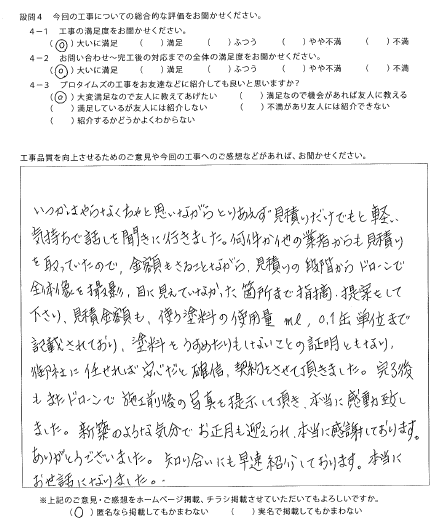 設問4 今回の工事についての総合的な評価をお聞かせください。
4-1 工事の満足度をお聞かせください。
(◎)大いに満足 ( )満足 ( )ふつう ( )やや不満 ( )不満
4-2 お問い合わせ~完工後の対応までの全体の満足度をお聞かせください。
(◎)大いに満足 ( )満足 ( )ふつう ( )やや不満 ( )不満
4-3 プロタイムズの工事をお友達などに紹介しても良いと思いますか?
(◎)大変満足なので友人に教えてあげたい ( )満足なので機会があれば友人に教える
( )満足しているが友人には紹介しない ( )不満があり友人には紹介できない
( )紹介するかどうかよくわからない
工事品質を向上させるためのご意見や今回の工事へのご感想などがあれば、お聞かせください。
いつかはやらなくちゃと思いながらとりあえず見積りだけでもと軽い
気持ちで話しを聞きに行きました。何件か他の業者からも見積り
を取っていたので、金額もさることながら、見積りの段階からドローンで
全体像を撮影、目に見えていなかった箇所まで指摘、提案をして
下さり、見積金額も、使う塗料の使用量 ml, 0.1缶単位まで
記載されており、塗料をうすめたりもしないことの証明ともなり、
御社に任せれば安心だと確信、契約とさせて頂きました。完了後
もまたドローンで施工前後の写真を提示して頂き、本当に感動致し
ました。新築のような気分でお正月も迎えられ、本当に感謝しております。
ありがとうございました。知り合いにも早速紹介しております。本当に
お世話になりました。
※上記のご意見・ご感想をホームページ掲載、チラシ掲載させていただいてもよろしいですか。
(○)匿名なら掲載してもかまわない ( )実名で掲載してもかまわない